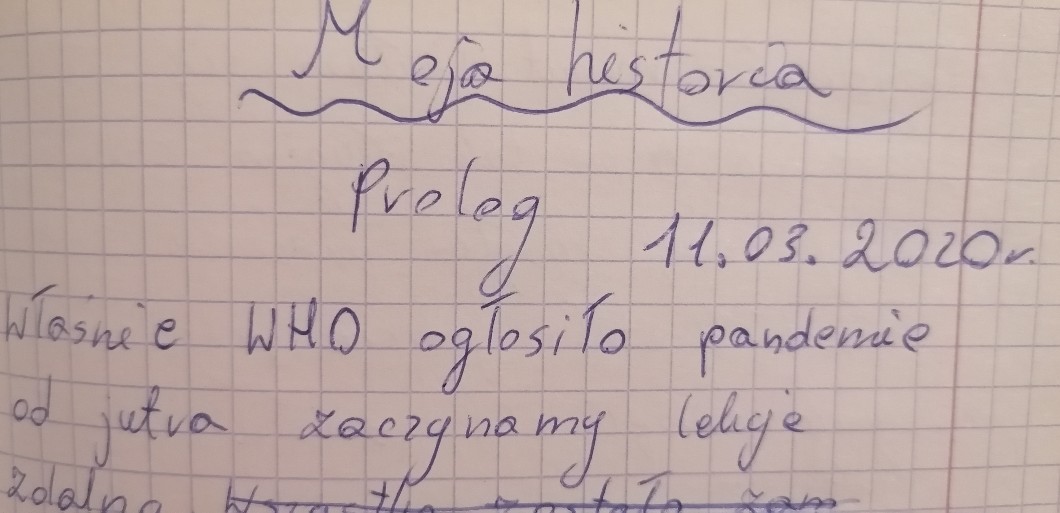 Moja historia
Prolog
11.03.2020r.
Właśnie WHO ogłosiło pandemie
od jutra zaczynamy lekcje
zdalne